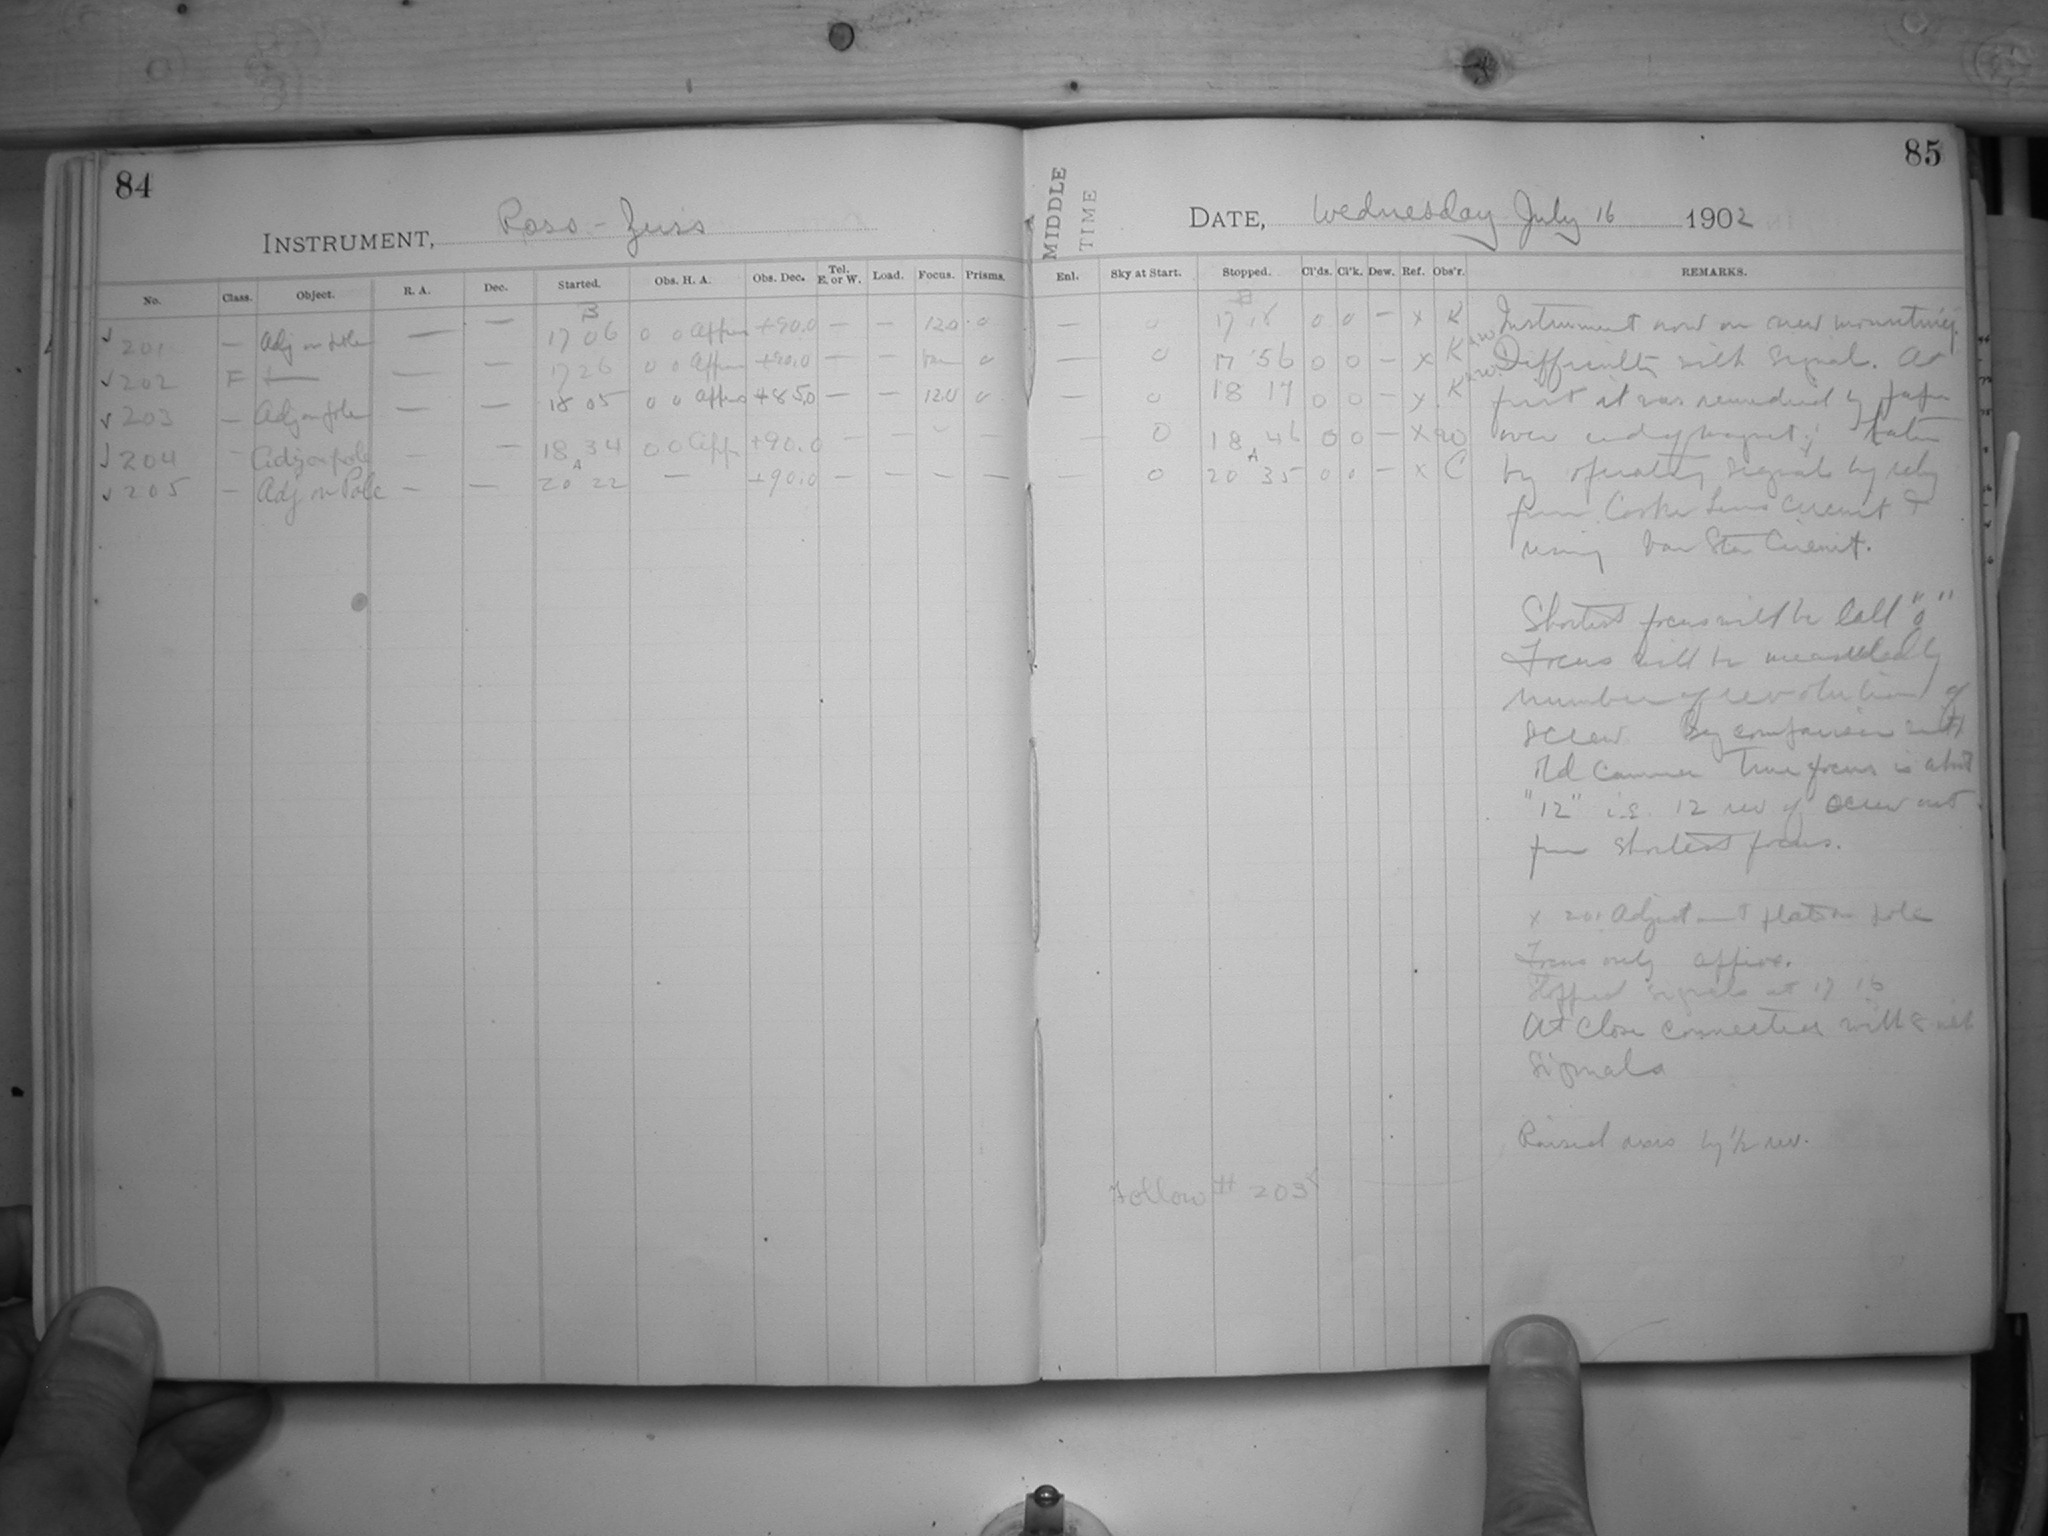 84
INSTRUMENT, Ross-Zeiss
No. Class. Object. R. A. Dec. Started. Obs. H. A. Obs. Dec. Tel. E. or W. Load. Focus. Prisms.
B
✓ 201 — Adj on pole — — 17 06 0 0 approx +90.0 — — 12.0 0
✓ 202 F — — 17 26 0 0 +90.0 — — 0
✓ 203 — Adj on pole — — 18 05 0 0 approx +85.0 — — 12.0 0
✓ 204 - Adj on pole — — 18 34 0 0 app +90.0 — — —
A
✓ 205 — Adj on Pole — — 20 22 — +90.0 — — — —
MIDDLE
TIME
85
DATE, Wednesday July 16 1902
Enl. Sky at Start. Stopped. Cl'ds. Cl'k. Dew. Ref. Obs'r. REMARKS.
— 0 17 16 0 0 — x K Instrument now on new mounting.
— 0 17 56 0 0 — x K Difficulty with signal. At
— 0 18 17 0 0 — x K first it was remedied by paper
— 0 18 46 0 0 — x over end of magnet; later
A
— 0 20 35 0 0 — x C by operating signals by relay
from Cooke Lens Circuit &
using Var Star Circuit.
Shortest focus will be call "0"
Focus will be measured by
number of revolutions of
screw. By comparison with
old Camera true focus is about
"12" i.e. 12 rev of screw out
from shortest focus.
x 201 Adjustment plate on pole
Focus only approx.
Stopped signals at 17 16
At close connected with
signals
Raised axis by 1/2 rev.
Follow # 203